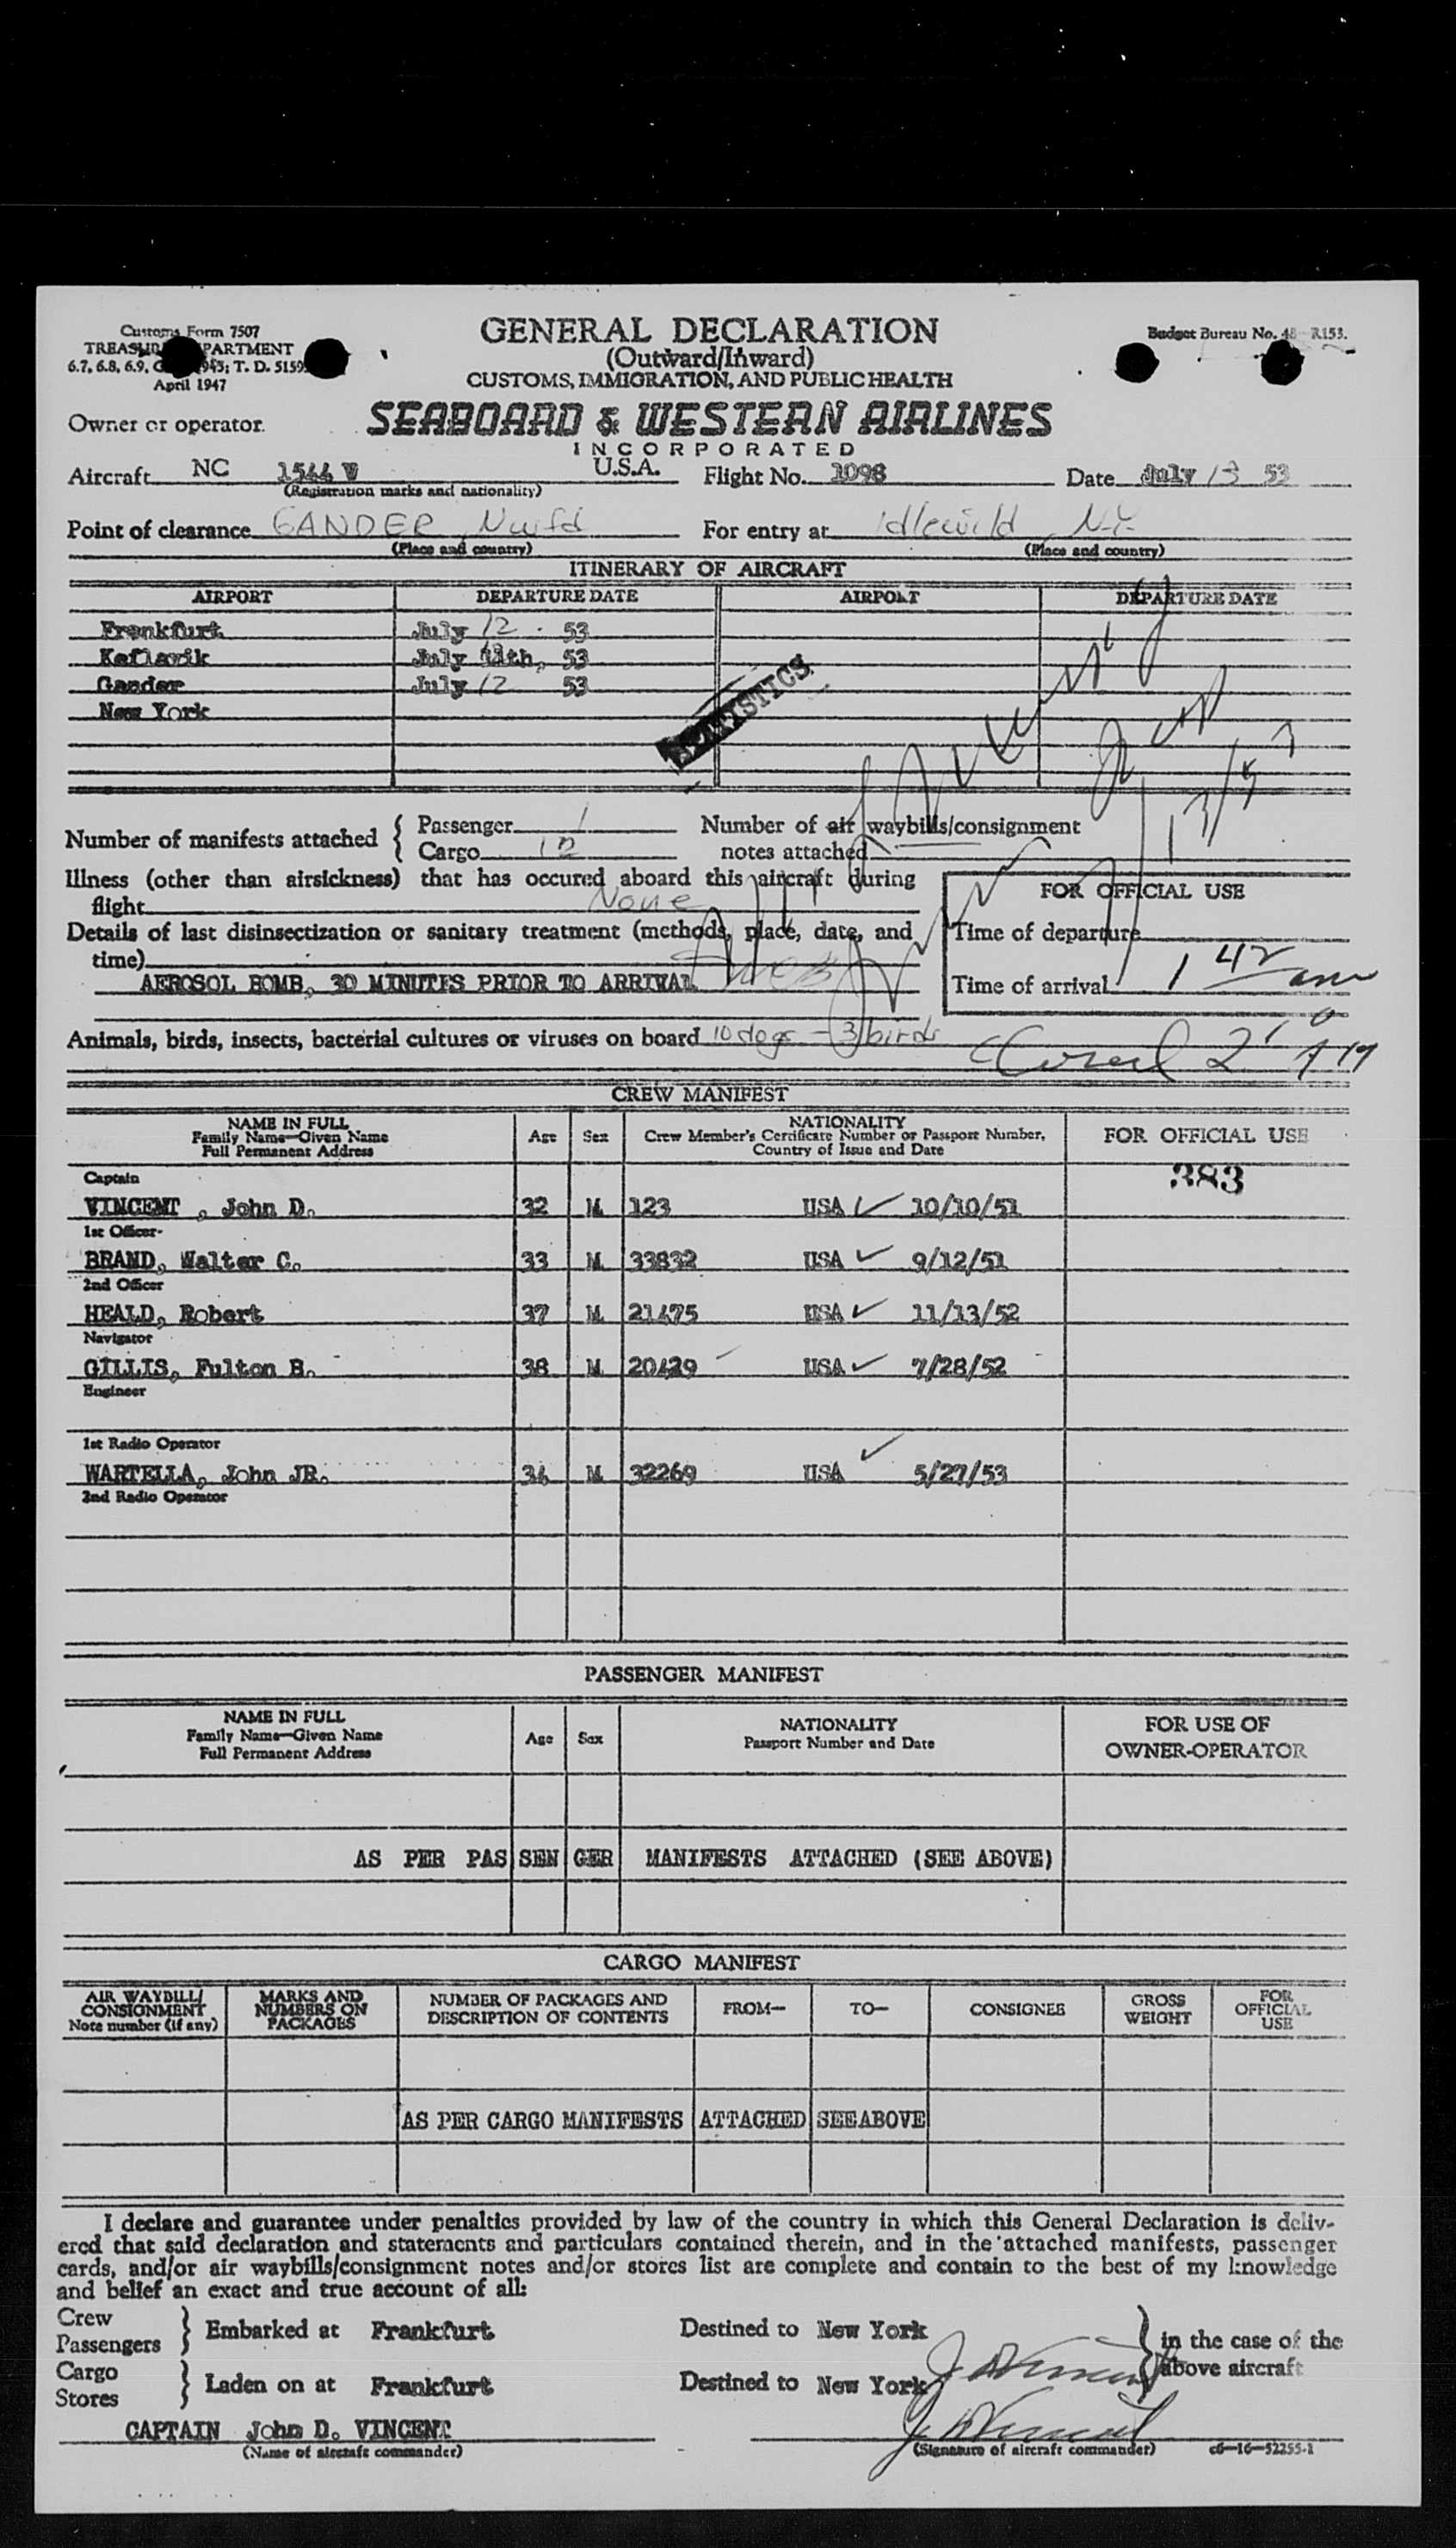 Customs Form 7507
TREASURY DEPARTMENT
6.7, 6.8, 6.9, T. D. 5159
April 1947
GENERAL DECLARATION
(Outward/Inward)
CUSTOMS, IMMIGRATION, AND PUBLIC HEALTH
Budget Bureau No. 48-R153.
Owner or operator. SEABOARD & WESTERN AIRLINES
INCORPORATED
Aircraft NC 1544 W U.S.A. Flight No. 1098 Date July 13 53
(Registration marks and nationality)
Point of clearance GANDER, Nwfd For entry at Idlewild N-Y-
(Place and country) (Place and country)
ITINERARY OF AIRCRAFT
AIRPORT DEPARTURE DATE AIRPORT DEPARTURE DATE
Frankfurt July 12 - 53
Keflavik July 12th, 53
Gander July 12 53
New York
STATISTICS
Number of manifests attached { Passenger 1 Number of air waybills/consignment
Cargo 12 notes attached
Illness (other than airsickness) that has occured aboard this aircraft during
flight None
FOR OFFICIAL USE
Details of last disinsectization or sanitary treatment (methods, place, date, and
time)
Time of departure
AEROSOL BOMB, 30 MINUTES PRIOR TO ARRIVAL
Time of arrival 1 42 am
Animals, birds, insects, bacterial cultures or viruses on board 10 dogs - 3 birds
CREW MANIFEST
NAME IN FULL
Family Name—Given Name
Full Permanent Address
Age Sex
NATIONALITY
Crew Member's Certificate Number or Passport Number,
Country of Issue and Date
FOR OFFICIAL USE
383
Captain
VINCENT , John D. 32 M 123 USA ✓ 10/10/51
1st Officer-
BRAND, Walter C. 33 M 33832 USA ✓ 9/12/51
2nd Officer
HEALD, Robert 37 M 21475 USA ✓ 11/13/52
Navigator
GILLIS, Fulton B. 38 M 20429 USA ✓ 7/28/52
Engineer
1st Radio Operator
WARTELLA, John JR. 34 M 32269 USA ✓ 5/27/53
2nd Radio Operator
PASSENGER MANIFEST
NAME IN FULL
Family Name—Given Name
Full Permanent Address
Age Sex
NATIONALITY
Passport Number and Date
FOR USE OF
OWNER-OPERATOR
AS PER PASSENGER MANIFESTS ATTACHED (SEE ABOVE)
CARGO MANIFEST
AIR WAYBILL/
CONSIGNMENT
Note number (if any)
MARKS AND
NUMBERS ON
PACKAGES
NUMBER OF PACKAGES AND
DESCRIPTION OF CONTENTS
FROM—
TO—
CONSIGNEE
GROSS
WEIGHT
FOR
OFFICIAL
USE
AS PER CARGO MANIFESTS ATTACHED SEE ABOVE
I declare and guarantee under penalties provided by law of the country in which this General Declaration is deliv-
ered that said declaration and statements and particulars contained therein, and in the attached manifests, passenger
cards, and/or air waybills/consignment notes and/or stores list are complete and contain to the best of my knowledge
and belief an exact and true account of all:
Crew
Passengers } Embarked at Frankfurt Destined to New York } in the case of the
above aircraft
Cargo
Stores } Laden on at Frankfurt Destined to New York
J D Vincent
CAPTAIN John D. VINCENT J D Vincent
(Name of aircraft commander) (Signature of aircraft commander) c6—16—52255-1